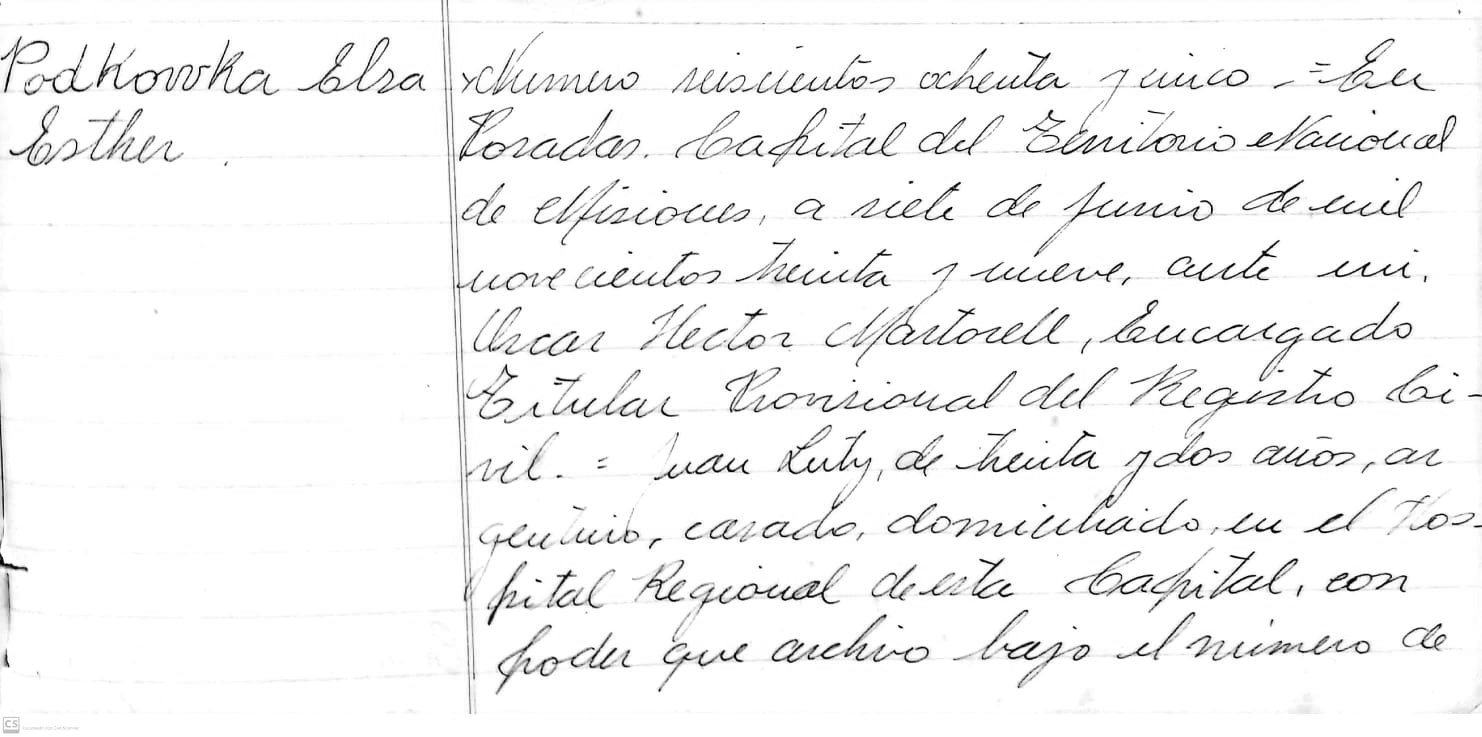 Podkowka Elsa
Esther.
Numero seiscientos ochenta y cinco - = En
Posadas. Capital del Territorio Nacional
de Misiones, a siete de junio de mil
novecientos treinta y nueve, ante mi.
Oscar Hector Martorell, Encargado
Titular Provisional del Registro Ci-
vil. = Juan Luty, de treinta y dos años, ar
gentino, casado, domiciliado, en el Hos-
pital Regional de esta Capital, con
poder que archivo bajo el número de
CS